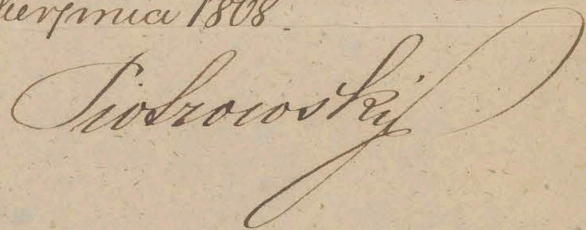 sierpnia 1808.
Piotrowskij